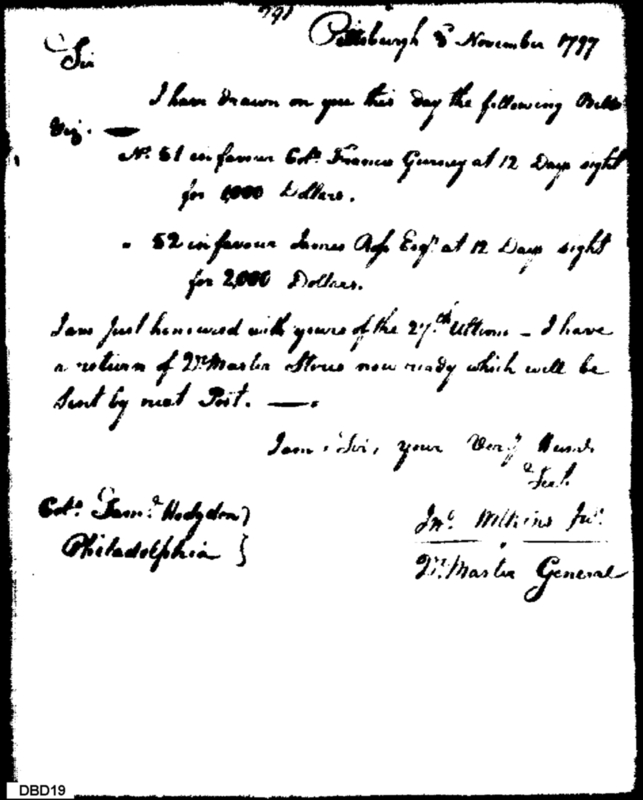 Pittsburgh 3 November 1797
Sir
I have drawn on you this day the following Bills
Viz. —
No. 51 in favour Colo. Francis Gurney at 12 Days sight
for 1,000 Dollars.
" 52 in favour James Ross Esqr. at 12 Days sight
for 2,000 Dollars.
I am Just honoured with yours of the 27th Ultimo – I have
a return of Qr. Master Stores now ready which will be
Sent by next Post. —
I am, Sir, your Very Humb
Colo. Saml. Hodgdon }
Philadelphia }
Jno. Wilkins Jnr.
Qr. Master General
DBD19